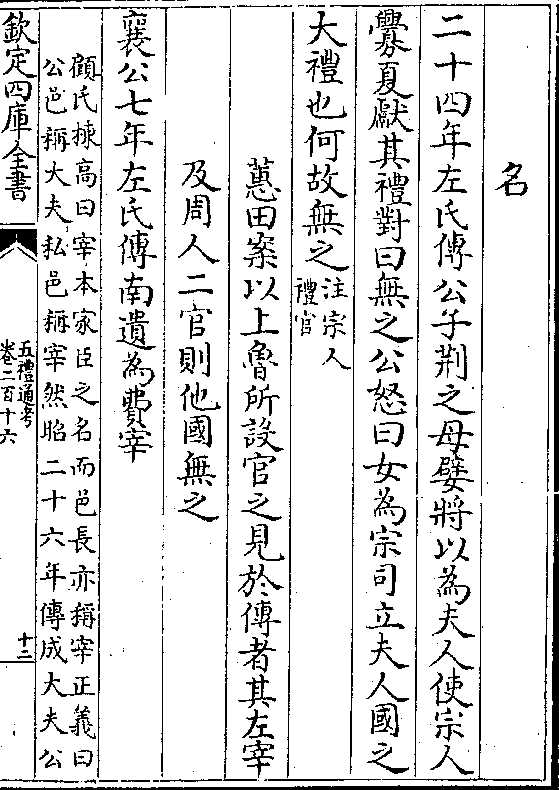 名
二十四年左氏傳公子荆之母嬖將以為夫人使宗人
釁夏獻其禮對曰無之公怒曰女為宗司立夫人國之
大禮也何故無之注宗人
禮官
蕙田案以上魯所設官之見於傳者其左宰
及周人二官則他國無之
襄公七年左氏傳南遺為費宰
顧氏棟高曰宰本家臣之名而邑長亦稱宰正義曰
公邑稱大夫私邑稱宰然昭二十六年傳成大夫公
欽定四庫全書
五禮通考
卷二百十六
十二